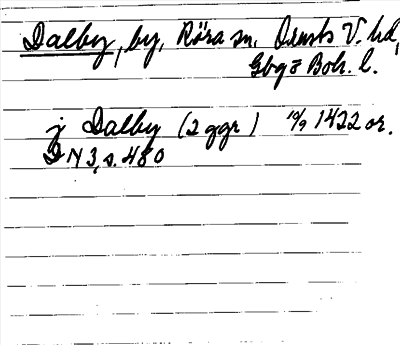 Dalby, by, Röra sn, Orusts V. hd,
Gbg o Boh. l.
j Dalby (2 ggr) 10/9 1422 or.
DN 3, s. 480